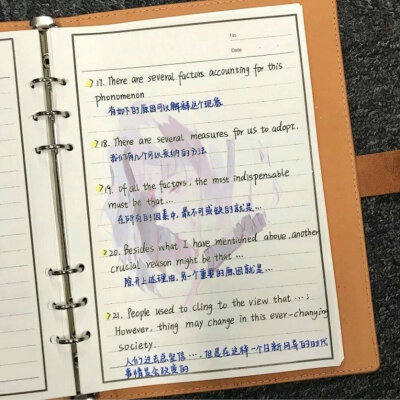 No.
Date
17. There are several factors accounting for this
phenomenon
有如下的原因可以解释这个现象
18. There are several measures for us to adopt.
我们有几个可以采纳的方法
19. Of all the factors, the most indispensable
must be that...
在所有的因素中，最不可或缺的就是...
20. Besides what I have mentioned above, another
crucial reason might be that ...
除开上述理由，另一个重要的原因就是...
21. People used to cling to the view that ...;
However, thing may change in this ever-changing
society.
人们过去总坚信...，但是在这样一个日新月异的时代
事情是会改变的